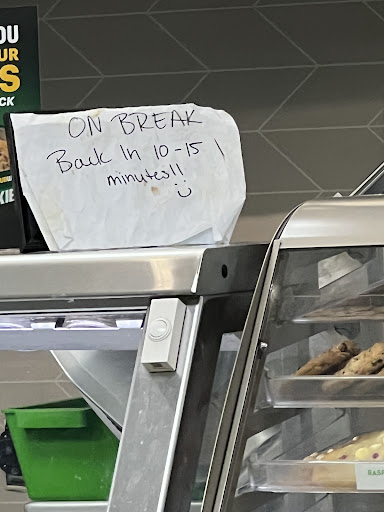 OU
UR
S
CK
KIE
ON BREAK
Back In 10-15
minutes!!
RASP